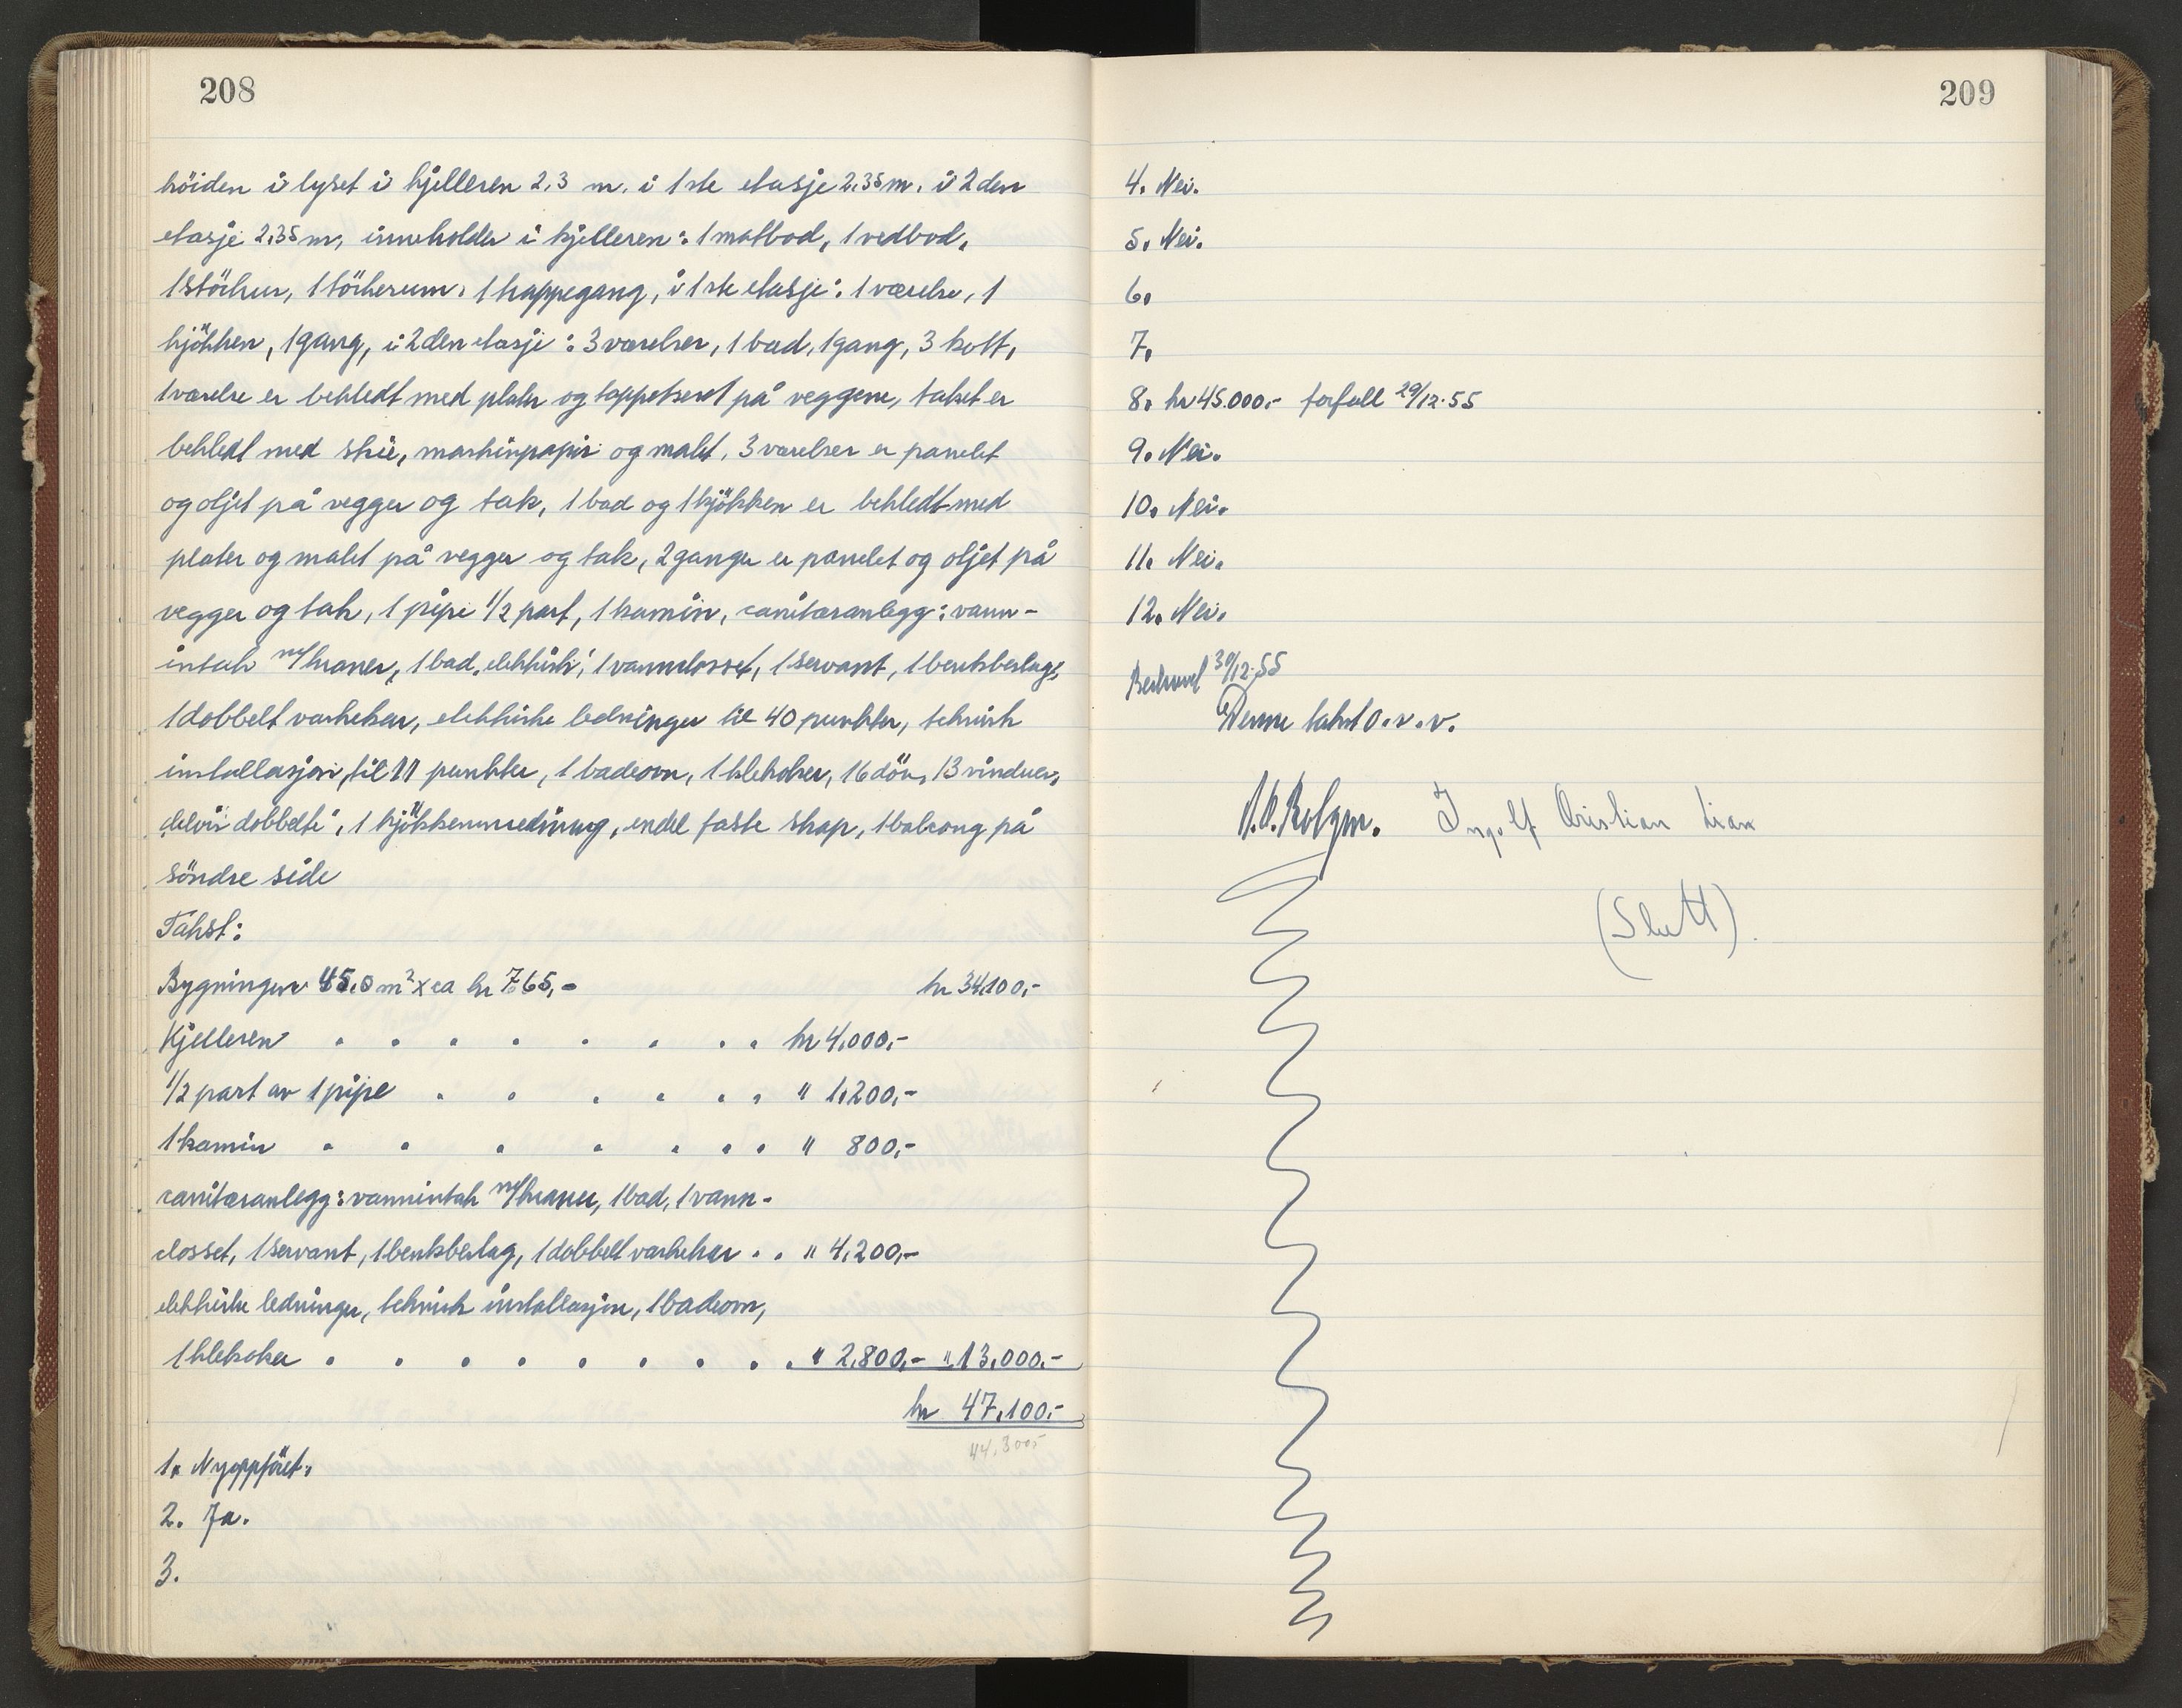 208
höiden i lyset i kjelleren 2,3 m. i 1ste etasje 2.35m. i 2den
etasje 2.35 m, inneholder i kjelleren: 1 matbod, 1 vedbod,
1 störhus, 1 törkerum, 1 trappegang, i 1ste etasje: 1 værelse, 1
kjökken, 1 gang, i 2den etasje: 3 værelser, 1 bad, 1 gang, 3 kott,
1 værelse er bekledt med plater og tappetseret på veggene, taket er
bekledt med stri, maskinpapir og malet, 3 værelser er panelet
og oljet på vegger og tak, 1 bad og 1 kjökken er bekledt med
plater og malet på vegger og tak, 2 ganger er panelet og oljet på
vegger og tak, 1 pipe 1/2 part, 1 kamin, sanitæranlegg: vann-
intak m/kraner, 1 bad, elektrisk, 1 vannclosset, 1 servant, 1 benkbeslag,
1 dobbelt vaskekar, elektriske ledninger til 40 punkter, teknisk
installasjon, til 11 punkter, 1 badeovn, 1 blekoker, 16 dör, 13 vinduer,
delvis dobbelte, 1 kjökkeninnredning, endel faste skap, 1 balcong på
söndre side
Takst:
Bygningen 45,0 m² x ca kr 765,- kr 34,100,-
Kjelleren . . . . . . . . kr 4,000,-
1/2 part av 1 pipe . . . . . . " 1,200,-
1 kamin . . . . . . . " 800,-
sanitæranlegg: vannintak m/kraner, 1 bad, 1 vann-
closset, 1 servant, 1 benkbeslag, 1 dobbelt vaskekar . . " 4,200,-
elektriske ledninger, teknisk installasjon, 1 badeovn,
1 blekoker . . . . . . . . . " 2,800,- " 13,000,-
kr 47,100,-
44,300,-
1. Nyoppföret.
2. Ja.
3.
209
4. Nei.
5. Nei.
6.
7.
8. kr 45.000,- forfall 29/12-55
9. Nei.
10. Nei.
11. Nei.
12. Nei.
30/12-55
Denne takst o.v.v.
Ingolf Cristian Lian
(Slutt).